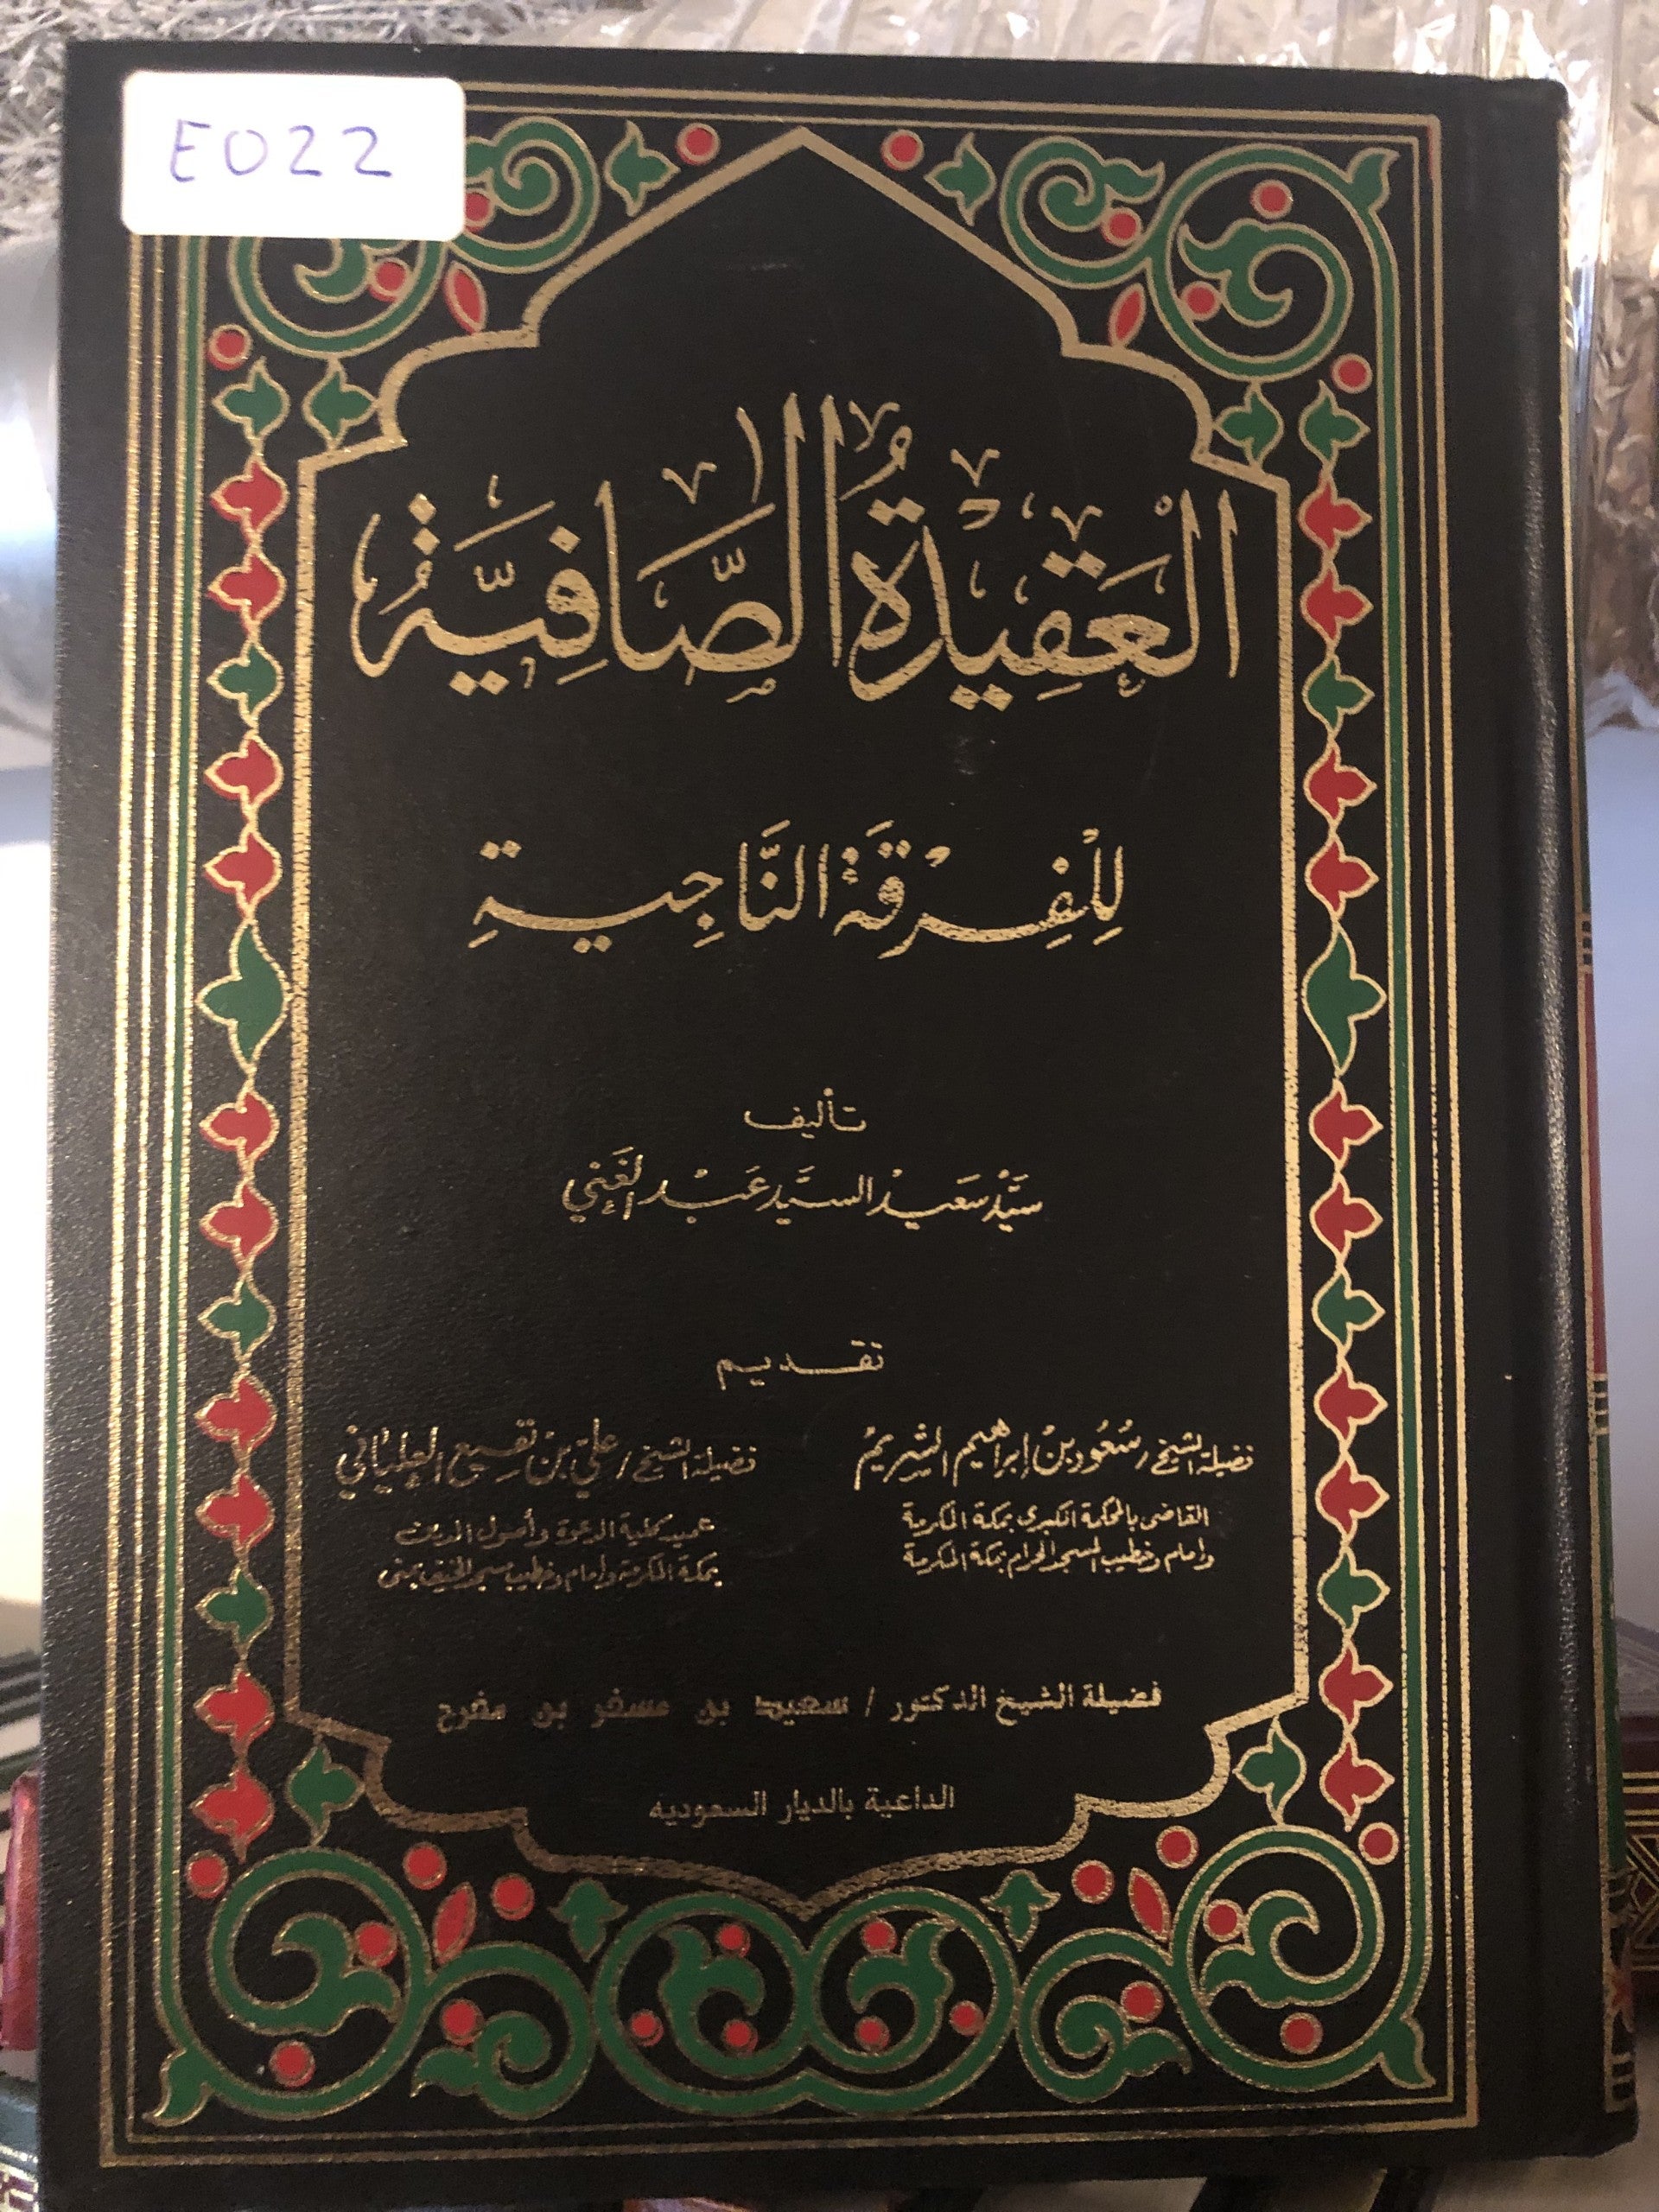 E022
العَقِيْدَةُ الصَّافِيَّةُ
لِلْفِرْقَةِ النَّاجِيَةِ
تأليف
سَيِّدْ سَعَيِدْ السَيَّد عَبْد الغَنِي
تقديم
فضيلة الشيخ / سُعُود بنْ إبراهيم الشريم
القاضي بالمحكمة الكبرى بمكة المكرمة
وإمام وخطيب المسجد الحرام بمكة المكرمة
فضيلة الشيخ / علي بن نفيع العلياني
عميد كلية الدعوة وأصول الدين
بمكة المكرمة وإمام وخطيب مسجد الخيف بمنى
فضيلة الشيخ الدكتور / سعيد بن مسفر بن مفرح
الداعية بالديار السعوديه